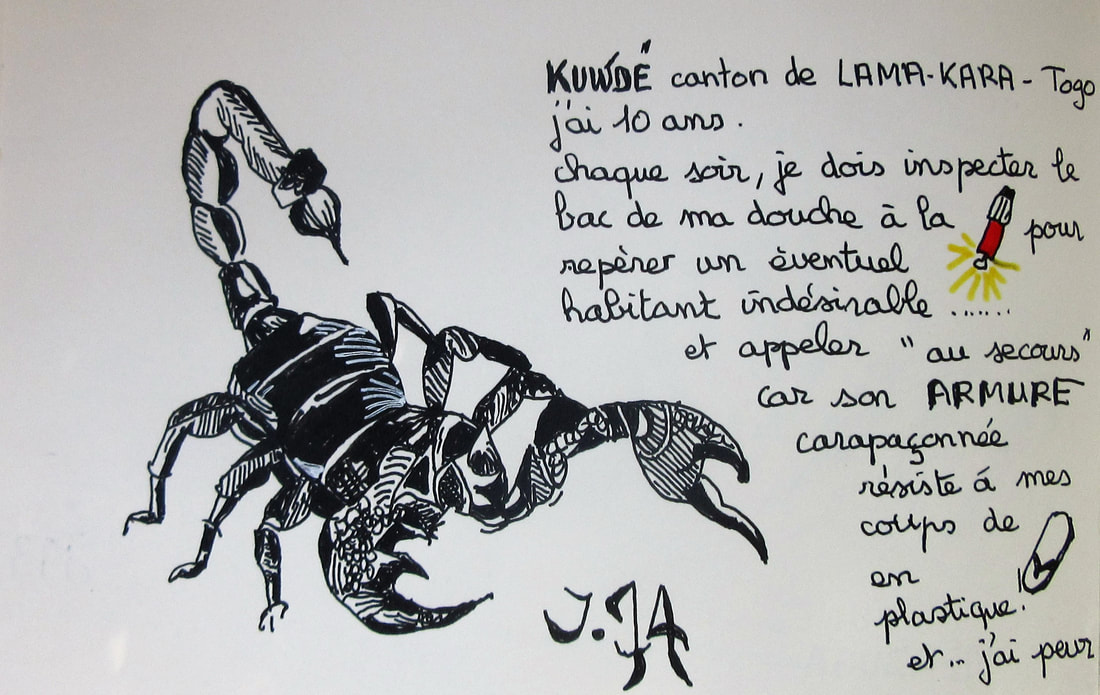 KUWDÉ canton de LAMA-KARA - Togo
j'ai 10 ans.
chaque soir, je dois inspecter le
bac de ma douche à la pour
repèrer un èventuel
habitant indésirable .......
et appeler "au secours"
car son ARMURE
carapaçonnée
résiste á mes
coups de
en
plastique!
et... j'ai peur
J.JA